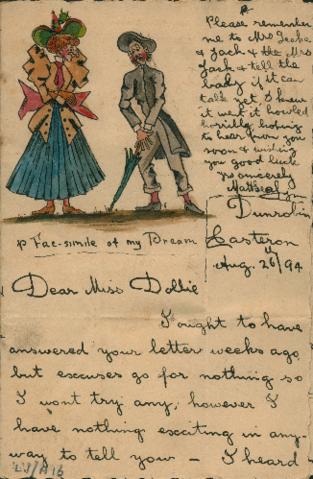 Please remember
me to Mrs
& Jack & the Mrs
Jack & tell the
baby if it can
talk yet I knew
it well it howled
horribly hoping
to hear from you
soon & wishing
you good luck
yrs sincerely
Dunrobin
Casterton
Aug. 26th/94
A Fac-simile of my Dream
Dear Miss Dollie
I ought to have
answered your letter weeks ago
but excuses go for nothing so
I wont try any, however I
have nothing exciting in any
way to tell you — I heard